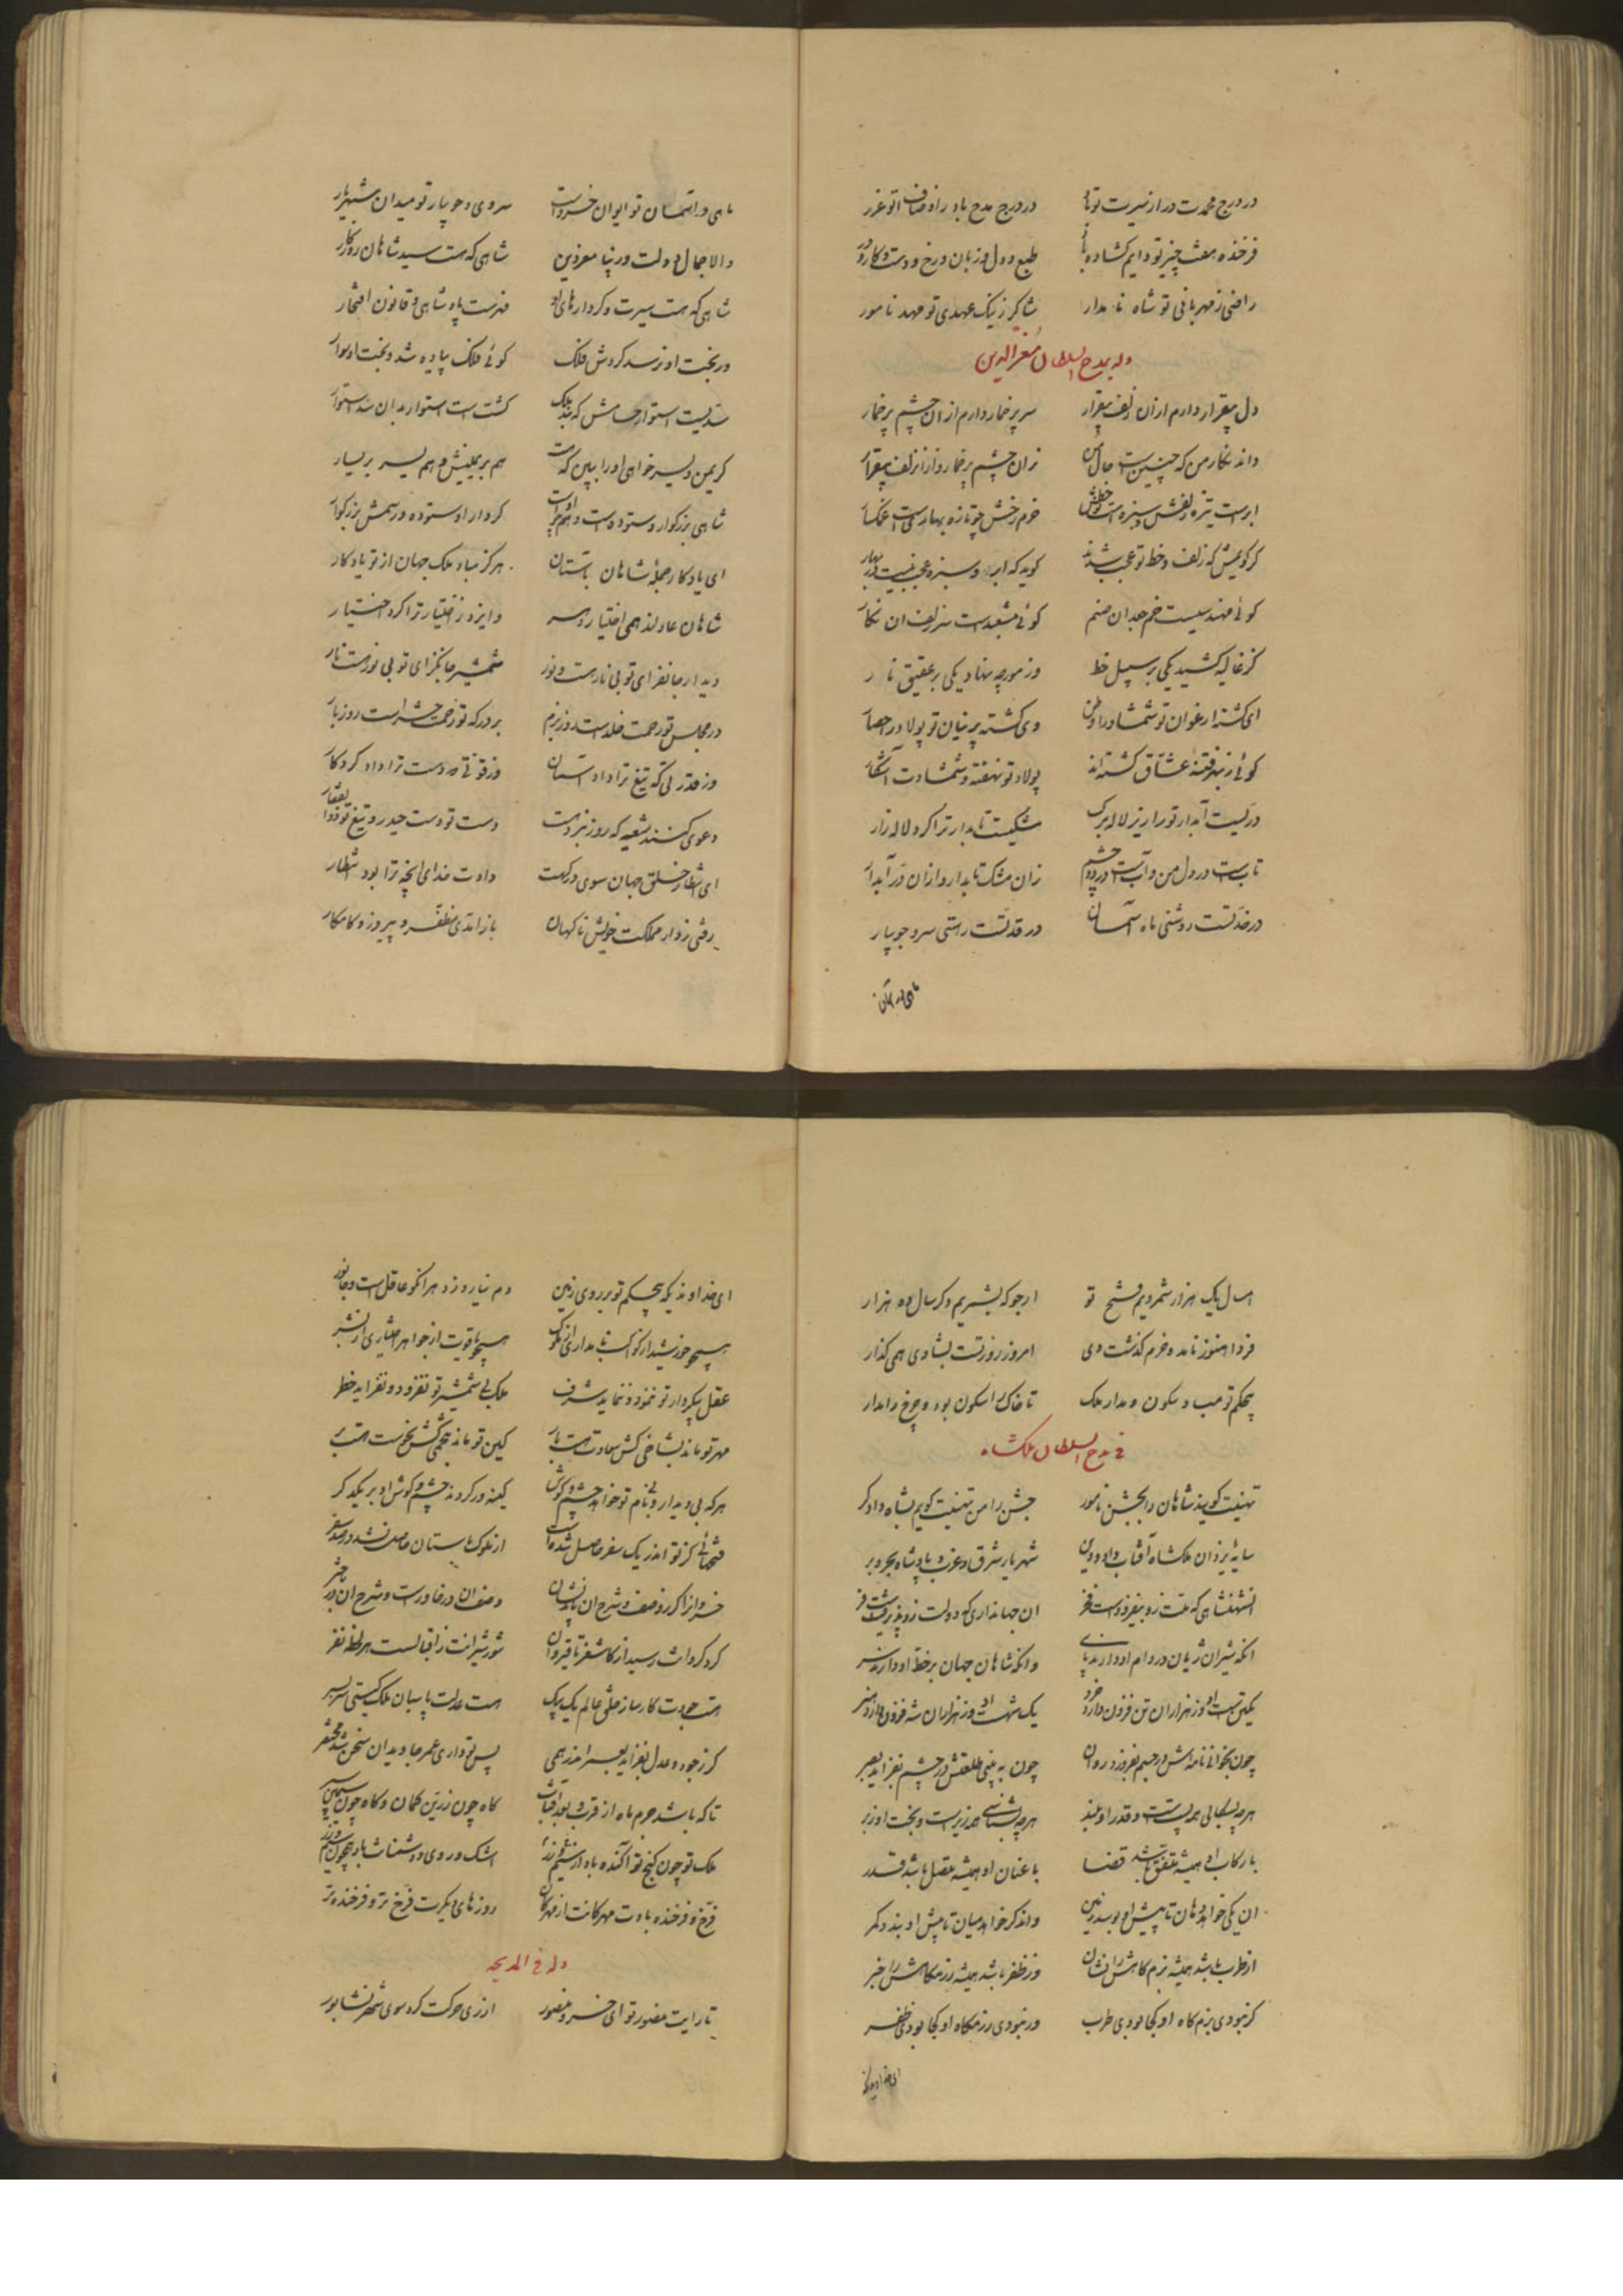 در درج محمدت درر از سیرت تو باد در درج مدح باد ز اوصاف تو غرر
فرخنده هفت چیز تو دایم گشاده باد طبع و دل و زبان و رخ و دست و کار و در
راضی ز مهربانی تو شاه نامدار شاکر ز نیک عهدی تو مهد نامور
وله بمدح السلطان معزالدین
دل بیقرار دارم از ان زلف بیقرار سر پر خمار دارم از ان چشم پر خمار
داند نکار من که چنین است حال من زان چشم پر خمار و از ان زلف بیقرار
ابرست تیره زلفش و سبزه است خطش خرم رخش چو تازه بهارست
گر گویمش که زلف و خط تو عجب شدند گوید که ابر و سبزه عجب نیست در بهار
گوئی مهندسیست خم جعد ان صنم گوئی مشعبدست سر زلف ان نکار
کز غالیه کشید یکی بر سهیل خط وز مورچه نهاد یکی بر عقیق نار
ای گشته ارغوان تو شمشاد را وطن وی گشته پرنیان تو پولاد را حصار
گوئی ز بهر فتنه عشاق گشته‌اند پولاد تو نهفته و شمشادت آشکار
دریست آبدار ترا زیر لاله برگ مشکیست تابدار ترا گرد لاله زار
تابست در دل من و آبست در دو چشم زان مشک تابدار و از ان در آبدار
در خد تست روشنی ماه آسمان در قد تست راستی سرو جویبار
ماهی و آسمان
ماهی و آسمان تو ایوان خسروست سروی و جویبار تو میدان شهریار
والا جمال دولت و دنیا معزدین شاهی که هست سید شاهان روزگار
شاهی که هست سیرت و کردارهای او فهرست پادشاهی و قانون افتخار
در بخت او نرسد گردش فلک گوئی فلک پیاده شد و بخت او سوار
سدیست استوار حسامش که بند ملک گشت است استوار بدان سد استوار
گر یمن و یسر خواهی او را ببین که هست هم یمن بر یمینش و هم یسر بر یسار
شاهی بزرگوار و ستوده است و هم چو اوست کردار او ستوده و رسمش بزرگوار
ای یادگار جمله شاهان باستان هرگز مباد ملک جهان از تو یادگار
شاهان عادلند همی اختیار دهر و ایزد ز اختیار ترا کرد اختیار
دیدار جانفزای تو بی نارست و نور شمشیر جانگزای تو بی نورست نار
در مجلس تو رحمت خلدست روز بزم بر درگه تو زحمت حشر است روز بار
وز قدرتی که تیغ ترا داد آسمان وز قوتی که دست ترا داد کردگار
دعوی کنند شیعه که روز نبرد هست دست تو دست حیدر و تیغ تو ذوالفقار
ای انتظار خلق جهان سوی درگهت دادت خدای انچه ترا بود انتظار
رفتی ز دار مملکت خویش ناگهان باز آمدی مظفر و پیروز و کامکار
امسال یک هزار شمردیم فتح تو ارجو که بشمریم دگر سال ده هزار
فردا هنوز نامد و خرم گذشت دی امروز روز تست بشادی همی گذار
بیحکم تو مباد سکون و مدار ملک تا خاک را سکون بود و چرخ را مدار
فی مدح السلطان ملکشاه
تهنیت گویند شاهان را بجشن نامور جشن را من تهنیت گویم بشاه دادگر
سایه یزدان ملکشاه آفتاب داد و دین شهریار شرق و غرب و پادشاه بحر و بر
آن شهنشاهی که ملت زو بیفزودست فخر ان جهانداری که دولت زو پذیرفتست فر
آنکه شیران ژیان در دام او دارند پای وانکه شاهان جهان بر خط او دارند سر
یک تنست او وز هزاران تن فزون دارد خرد یک شهست او وز هزاران شه فزون دارد هنر
چون بخوانی نامه‌اش در جسم بفروزد روان چون ببینی طلعتش در چشم بفزاید بصر
هرچه بسگالی همه پستست و قدر او بلند هرچه بشناسی همه زیرست و بخت او زبر
با رکاب او همیشه متفق باشد قضا با عنان او همیشه متصل باشد قدر
ان یکی خواهد دهان تا پیش او بوسد زمین و اندگر خواهد میان تا پیش او بندد کمر
از طرب باشد همیشه بزم گاهش را نشان وز ظفر باشد همیشه رزمگاهش را خبر
گر نبودی بزم گاه او کجا بودی طرب ور نبودی رزمگاه او کجا بودی ظفر
ای خداوندیکه
ای خداوندیکه بیحکم تو بر روی زمین دم نیارد زد هر انکو عاقل است و جانور
همچو خورشید از کواکب نامداری از ملوک همچو یاقوت از جواهر اختیاری از بشر
عقل بی کردار تو ننمود و ننماید شرف ملک بی شمشیر تو نفزود و نفزاید خطر
مهر تو ماند بشاخی کش سعادت هست بار کین تو ماند بتخمی کش نحوست هست بر
هرکه بی دیدار و بی نام تو خواهد چشم و گوش کینه ور گردند چشم و گوش او بر یکدگر
فتحهائی کز تو اندر یک سفر حاصل شده است از ملوک باستان حاصل نشد در صد سفر
خسروانرا گر ز وصف و شرح ان باید نشان وصف ان در خاورست و شرح ان در باختر
گرد گردانت رسید از کاشغر تا قیروان شور شیرانت ز اقبالست هر لحظه نفر
هست جودت کارساز خلق عالم یک بیک هست عدلت پاسبان ملک گیتی سربسر
گر ز جود و عدل بفزاید بعمر اندر همی پس تو داری عمر جاویدان سخن شد مختصر
تا که باشد جرم ماه از قرب و بعد آفتاب گاه چون زرین کمان و گاه چون سیمین سپر
ملک تو چون گنج تو آگنده باد از سیم و زر اشک و روی دشمنانت باد همچون سیم و زر
فرخ و فرخنده بادت مهرگانت از مهرگان روزهای دیگرت فرخ تر و فرخنده تر
وله فی المدیحه
تا رایت منصور تو ای خسرو منصور از ری حرکت کرد سوی شهر نشابور